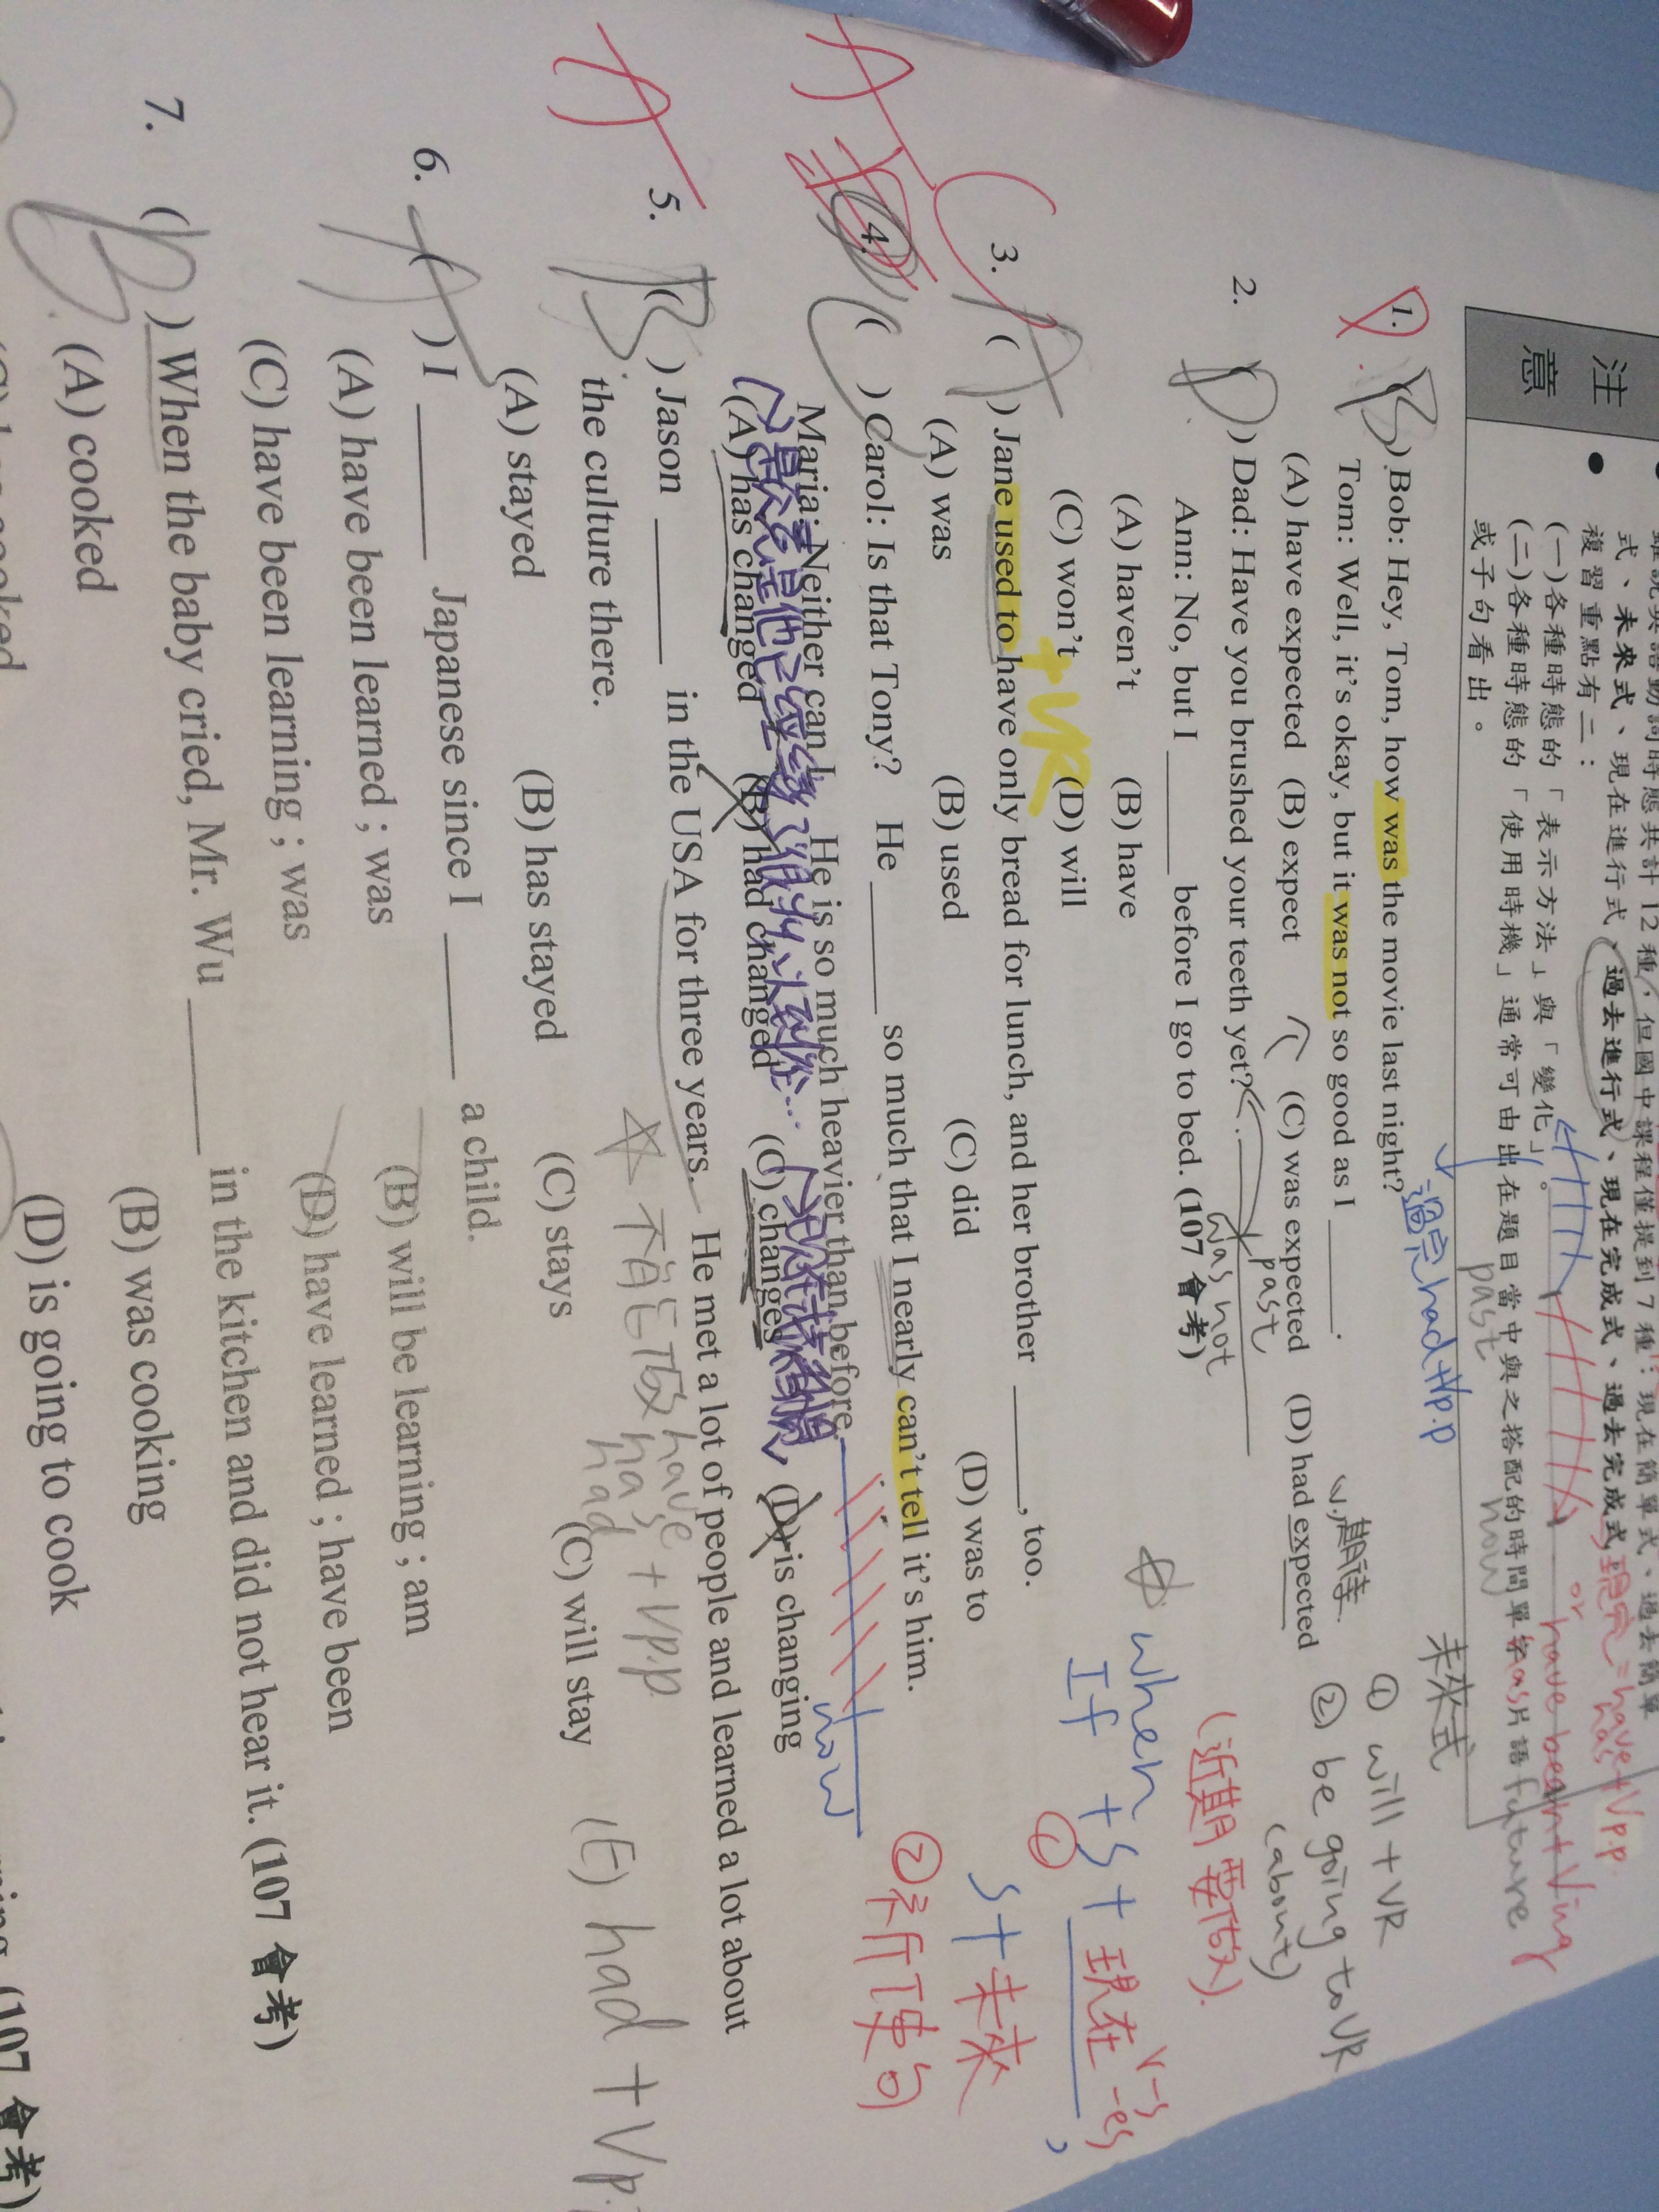 雖說英語動詞時態共計 12 種，但國中課程僅提到 7 種：現在簡單式、過去簡單
式、未來式、現在進行式、過去進行式、現在完成式、過去完成式
現完=have+Vp.p.
has
複習重點有二：
or have been+Ving
(一)各種時態的「表示方法」與「變化」。
past
now
future
(二)各種時態的「使用時機」通常可由出在題目當中與之搭配的時間單字片語
或子句看出。
注意
過完had+Vp.p
未來式
① will + VR
② be going to VR
(about)
(近期要做).
1. B ) Bob: Hey, Tom, how was the movie last night?
Tom: Well, it's okay, but it was not so good as I ______.
期待
(A) have expected (B) expect (C) was expected (D) had expected
2. D ) Dad: Have you brushed your teeth yet?
past
was not
Ann: No, but I ______ before I go to bed. (107 會考)
(A) haven't (B) have
(C) won't (D) will
+VR
when
If + S + 現在 v-s
-es ,
① S + 未來
② 祈使句
3. ( A ) Jane used to have only bread for lunch, and her brother ______, too.
(A) was (B) used (C) did (D) was to
4. ( ) Carol: Is that Tony? He ______ so much that I nearly can't tell it's him.
Maria: Neither can I. He is so much heavier than before.
now
(A) has changed (B) had changed (C) changes (D) is changing
5. ( B ) Jason ______ in the USA for three years. He met a lot of people and learned a lot about
the culture there.
have
has + Vp.p
had
(A) stayed (B) has stayed (C) stays (C) will stay (E) had + Vp.
6. ( A ) I ______ Japanese since I ______ a child.
(A) have been learned ; was (B) will be learning ; am
(C) have been learning ; was (D) have learned ; have been
7. ( B ) When the baby cried, Mr. Wu ______ in the kitchen and did not hear it. (107 會考)
(A) cooked (B) was cooking
(D) is going to cook
(107 會考)